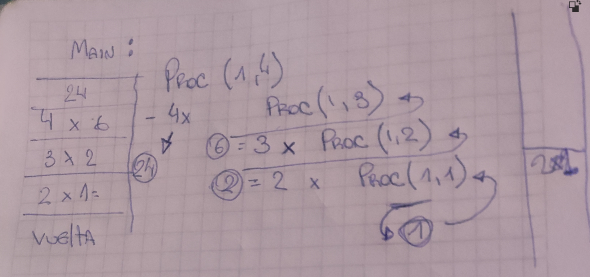 MAIN:
24
4 x 6
3 x 2
2 x 1=
VUELTA
PROC (1,4)
- 4x
24
PROC(1,3)
6 = 3 x PROC(1,2)
2 = 2 x PROC(1,1)
1